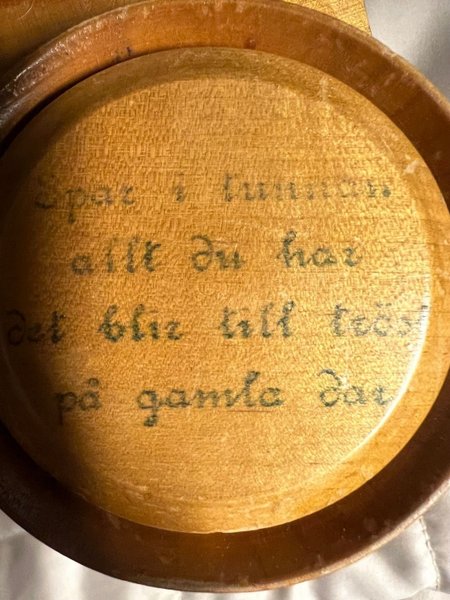 Spar i tunnan
allt du har
det blir till tröst
på gamla dar